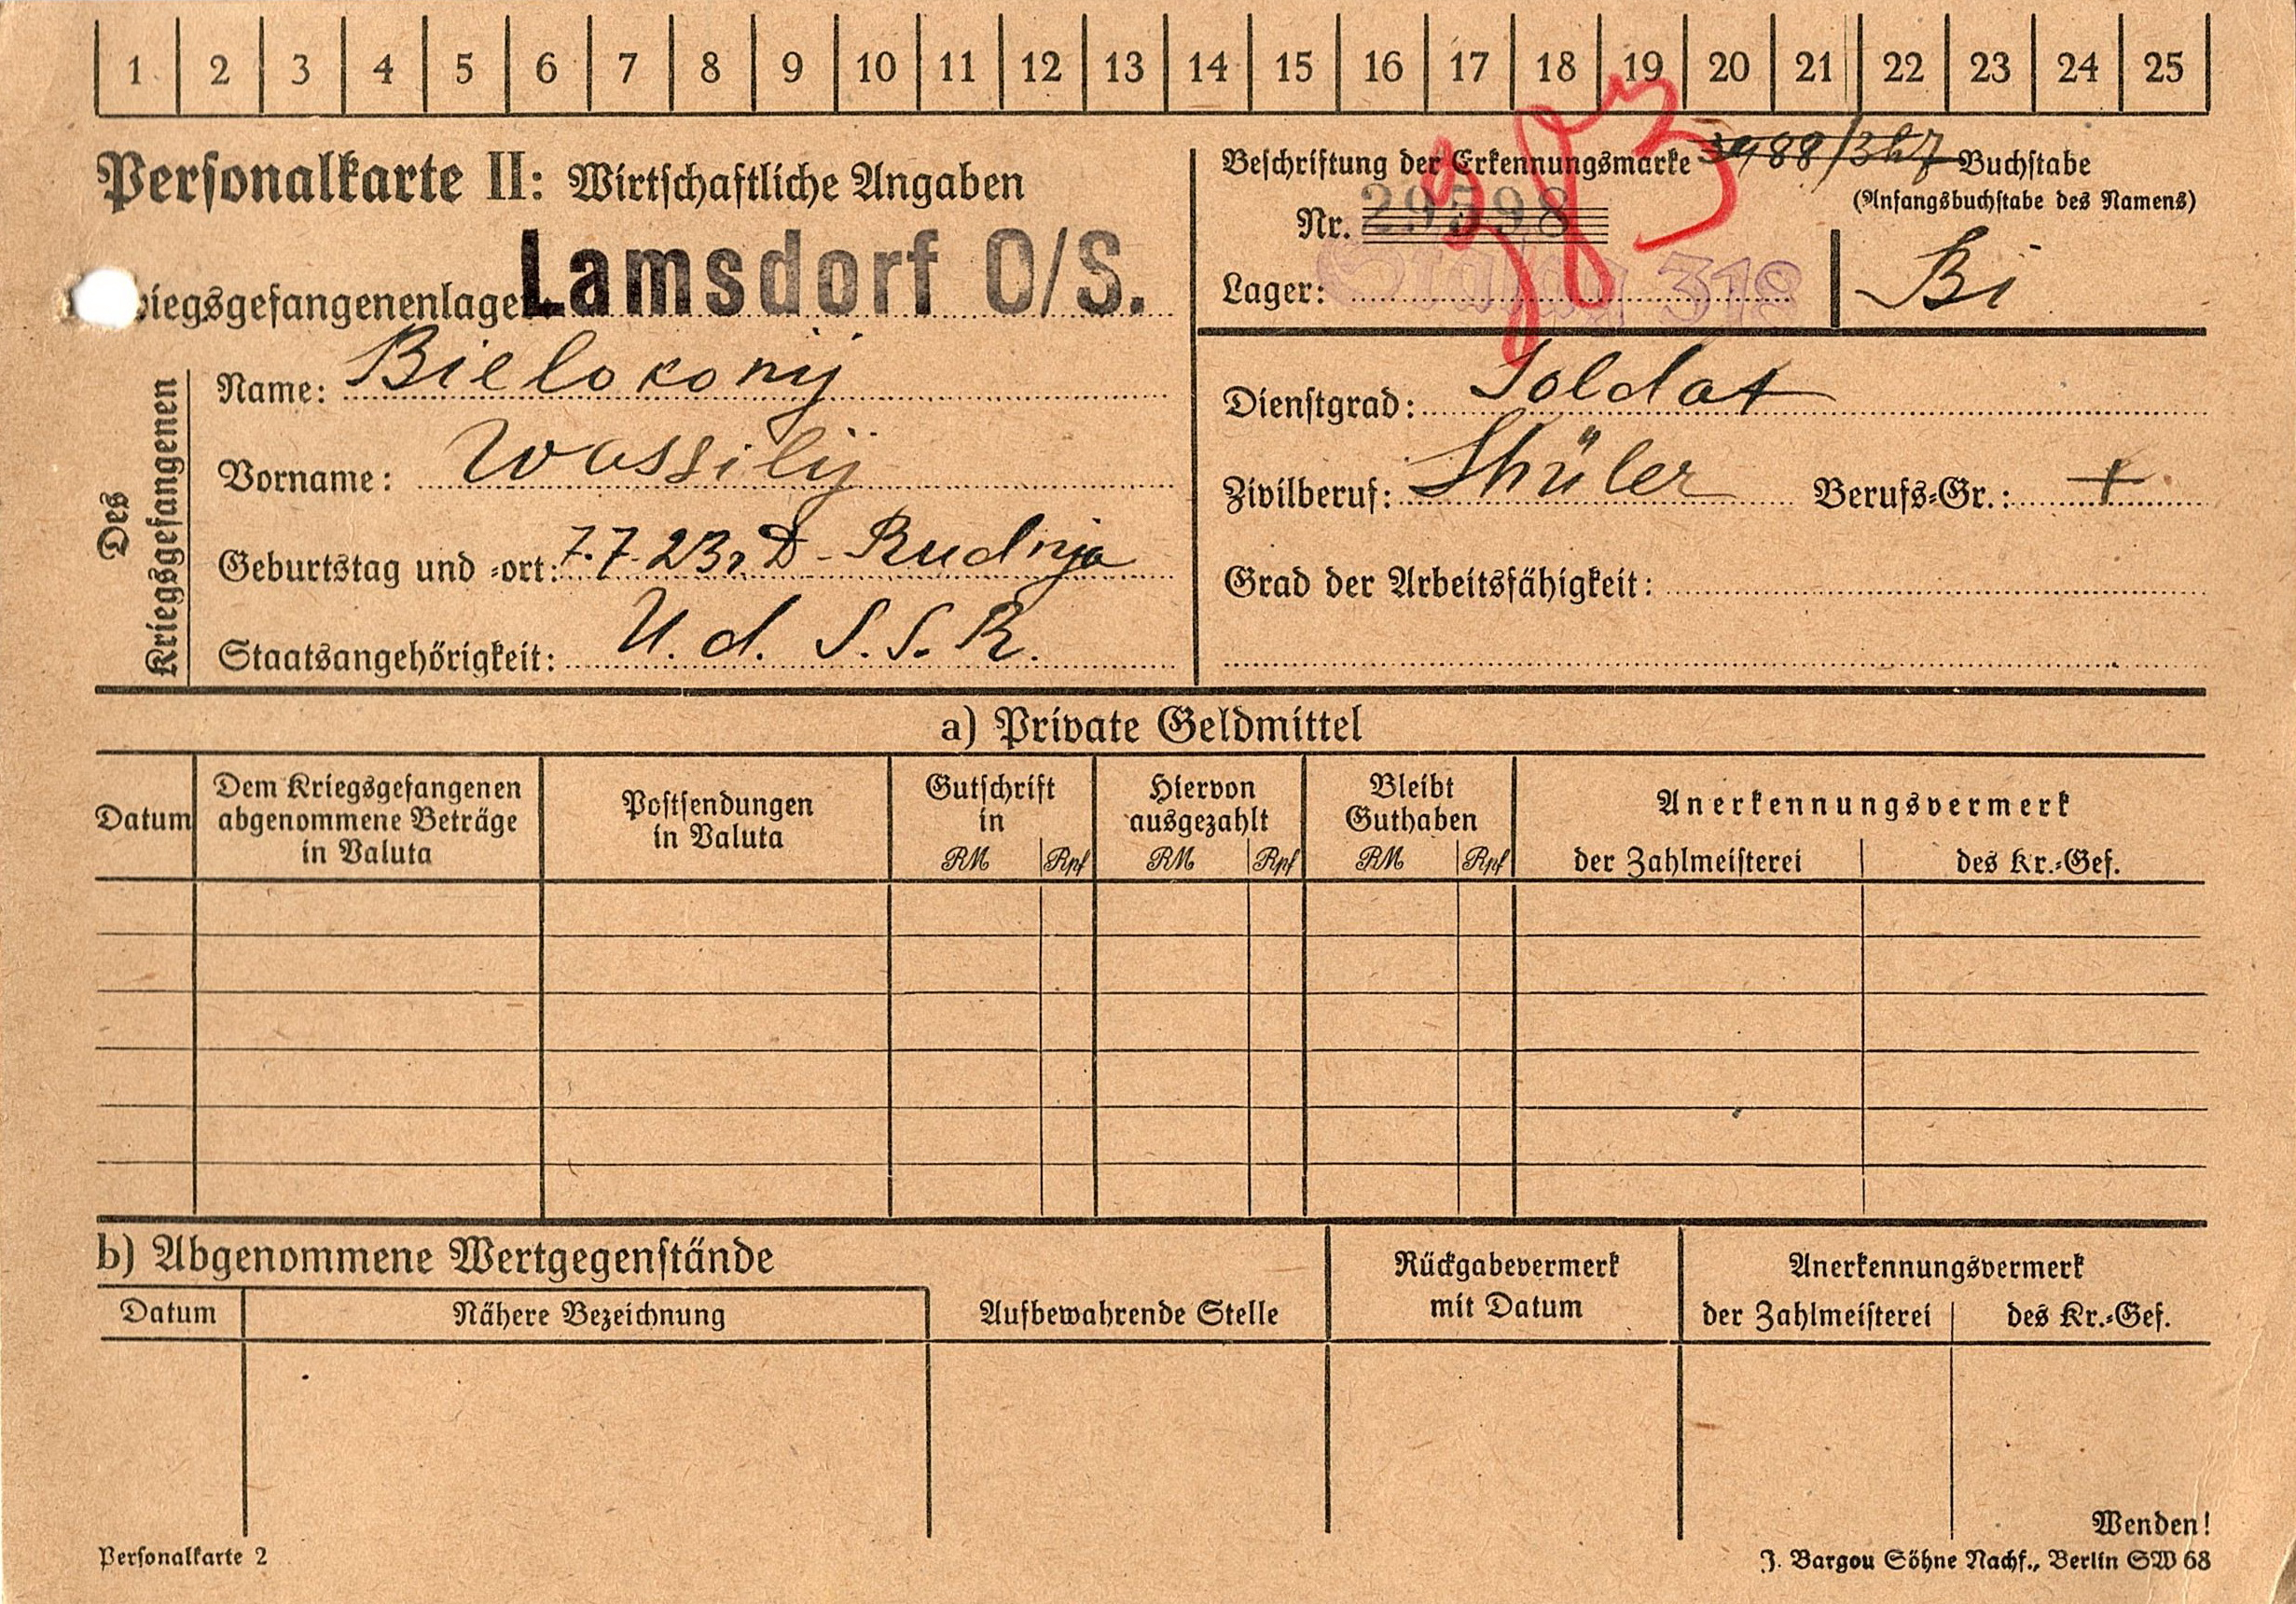 1 2 3 4 5 6 7 8 9 10 11 12 13 14 15 16 17 18 19 20 21 22 23 24 25
Personalkarte II: Wirtschaftliche Angaben
Beschriftung der Erkennungsmarke
Buchstabe
(Anfangsbuchstabe des Namens)
Nr. 29798
Lager: Stalag 318
Bi
riegsgefangenenlager Lamsdorf O/S.
Des Kriegsgefangenen
Name: Bielokonij
Vorname: Wassilij
Geburtstag und -ort: 7.7.23, D-Rudnja
Staatsangehörigkeit: U.d.S.S.R.
Dienstgrad: Soldat
Zivilberuf: Shüler Berufs-Gr.: +
Grad der Arbeitsfähigkeit:
a) Private Geldmittel
Datum
Dem Kriegsgefangenen abgenommene Beträge in Valuta
Postsendungen in Valuta
Gutschrift in RM Rpf
Hiervon ausgezahlt RM Rpf
Bleibt Guthaben RM Rpf
Anerkennungsvermerk
der Zahlmeisterei des Kr.-Gef.
b) Abgenommene Wertgegenstände
Datum Nähere Bezeichnung
Aufbewahrende Stelle
Rückgabevermerk mit Datum
Anerkennungsvermerk
der Zahlmeisterei des Kr.-Gef.
Wenden!
Personalkarte 2
J. Bargou Söhne Nachf., Berlin SW 68